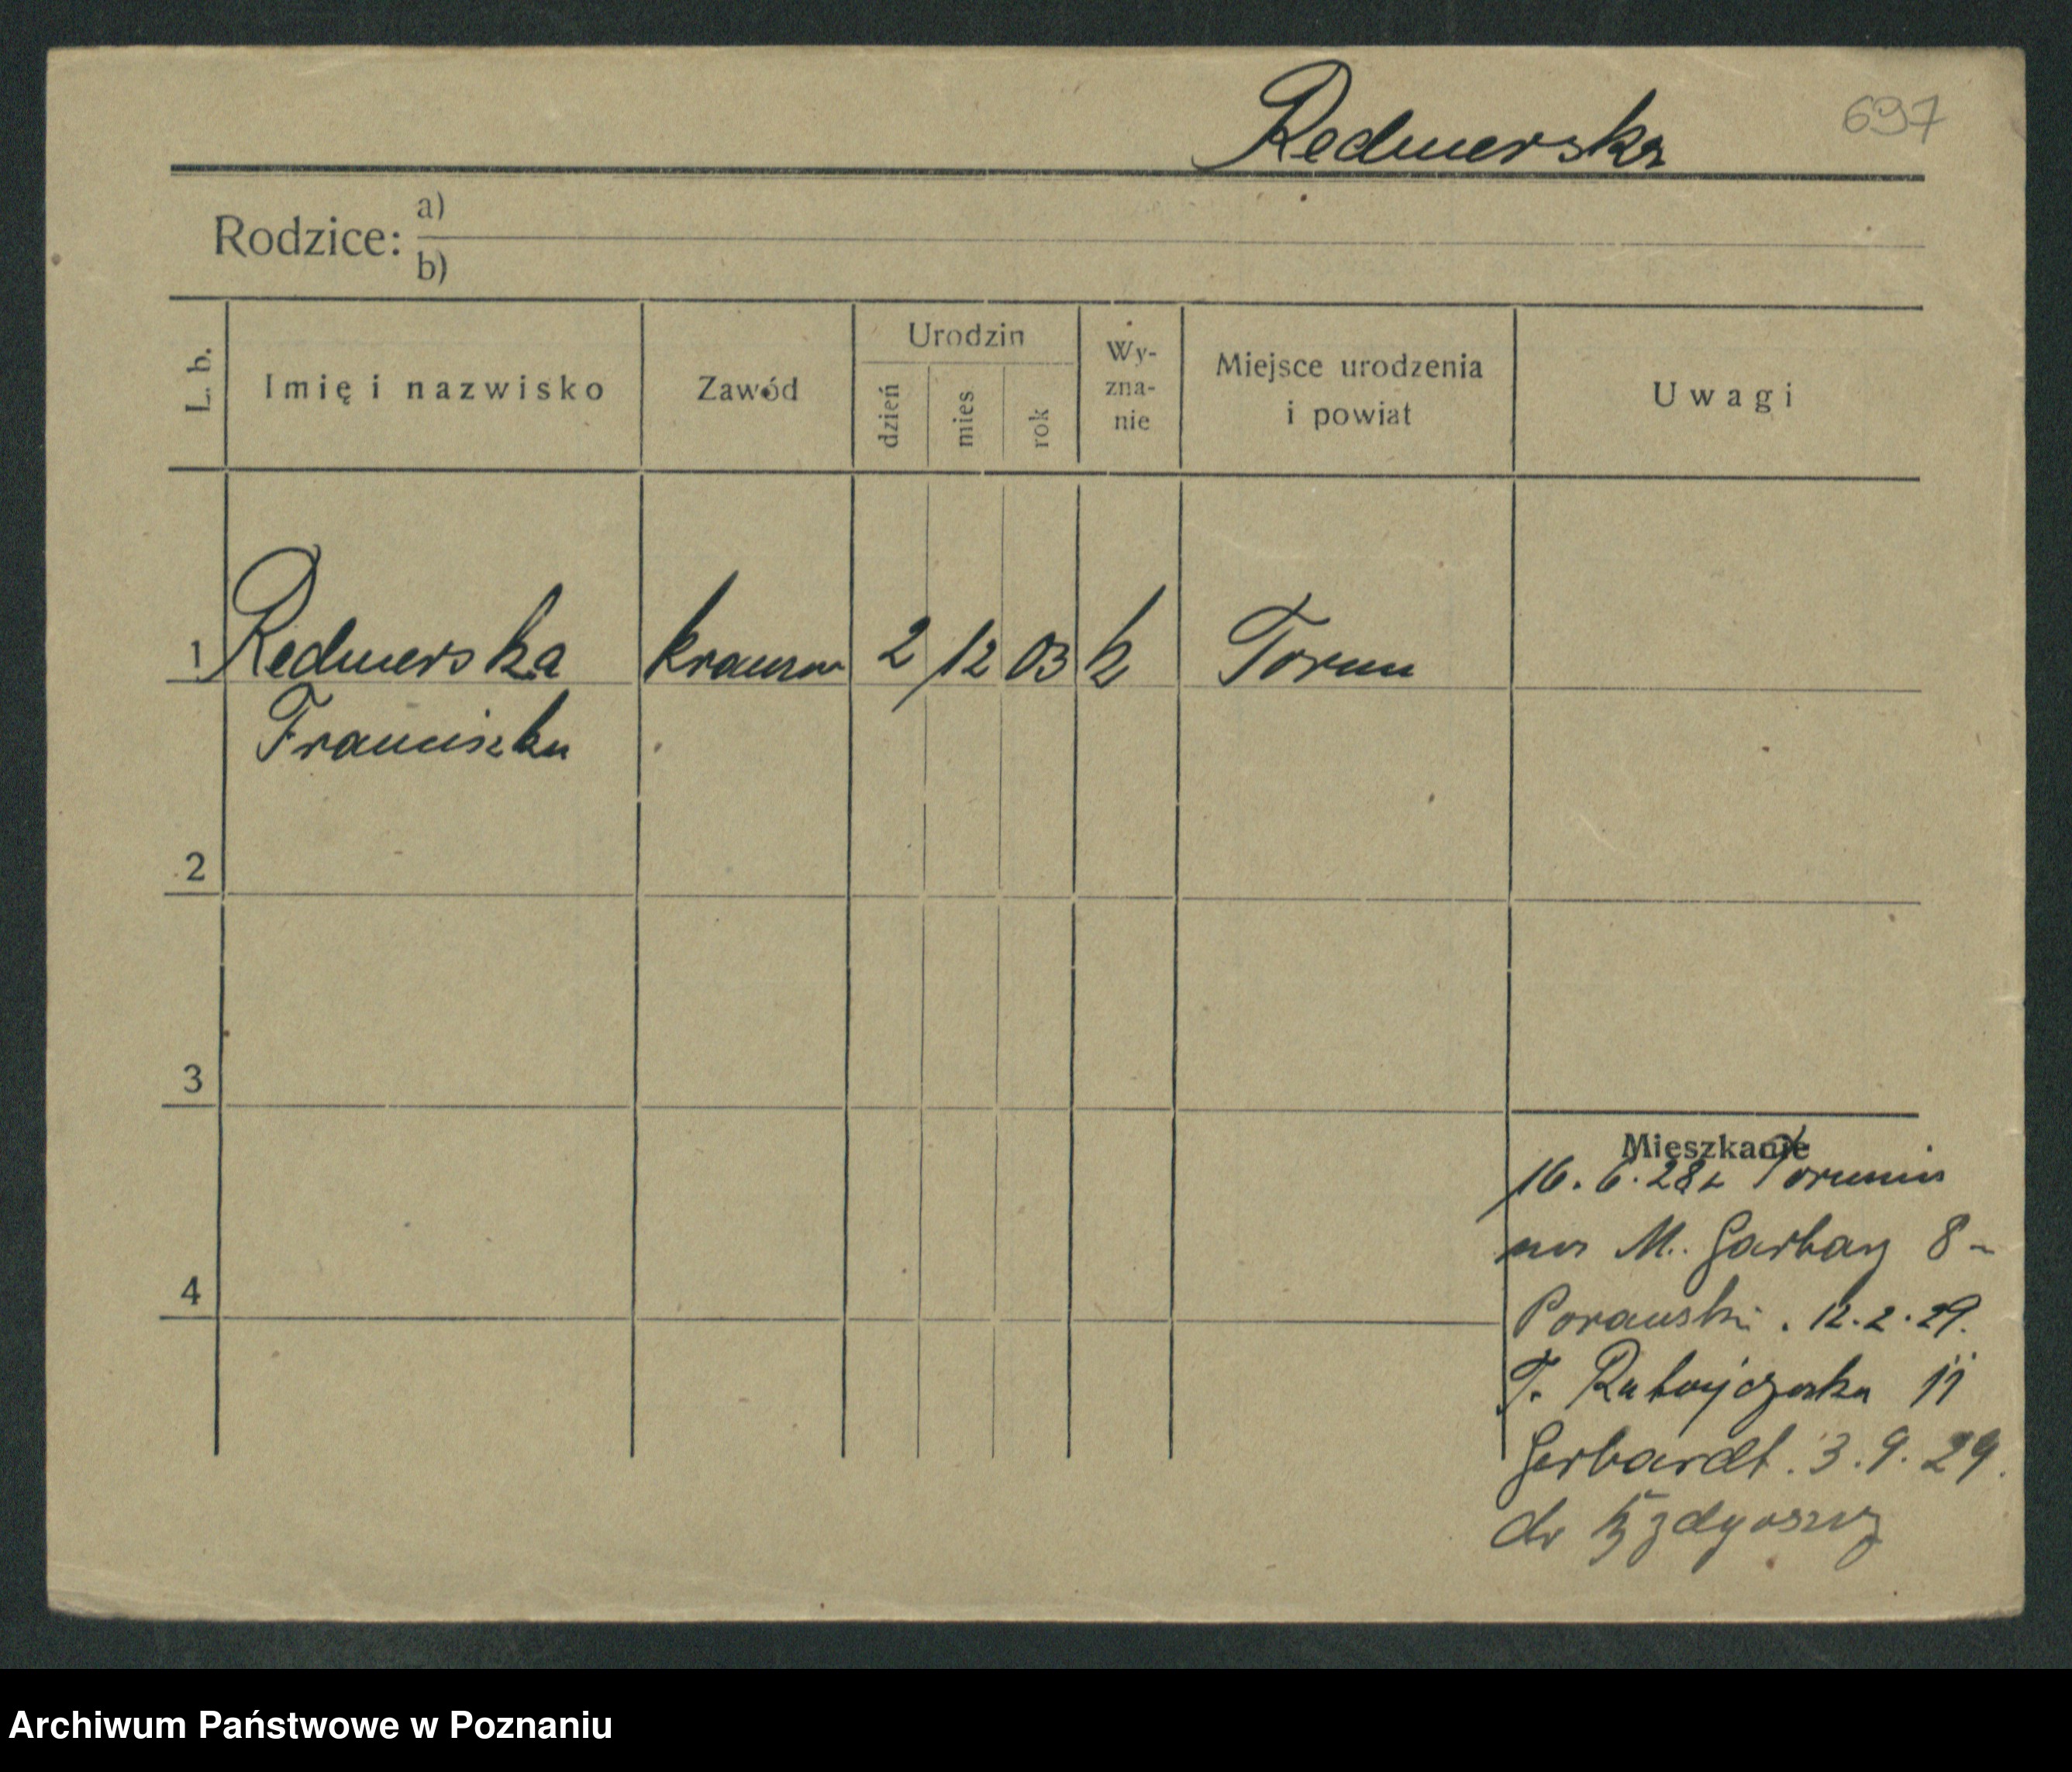 Redmerska
697
Rodzice: a)
b)
L. b. Imię i nazwisko Zawód Urodzin dzień mies rok Wy-zna-nie Miejsce urodzenia i powiat Uwagi
1 Redmerska 2/12 03 k Torun
Franciszka
2
3
4
Mieszkanie
16. 6. 28 z Torunia
na M. Garbary 8 -
. 12. 2. 29.
11
Gerhardt. 3. 9. 29.
do Bydgoszczy
Archiwum Państwowe w Poznaniu